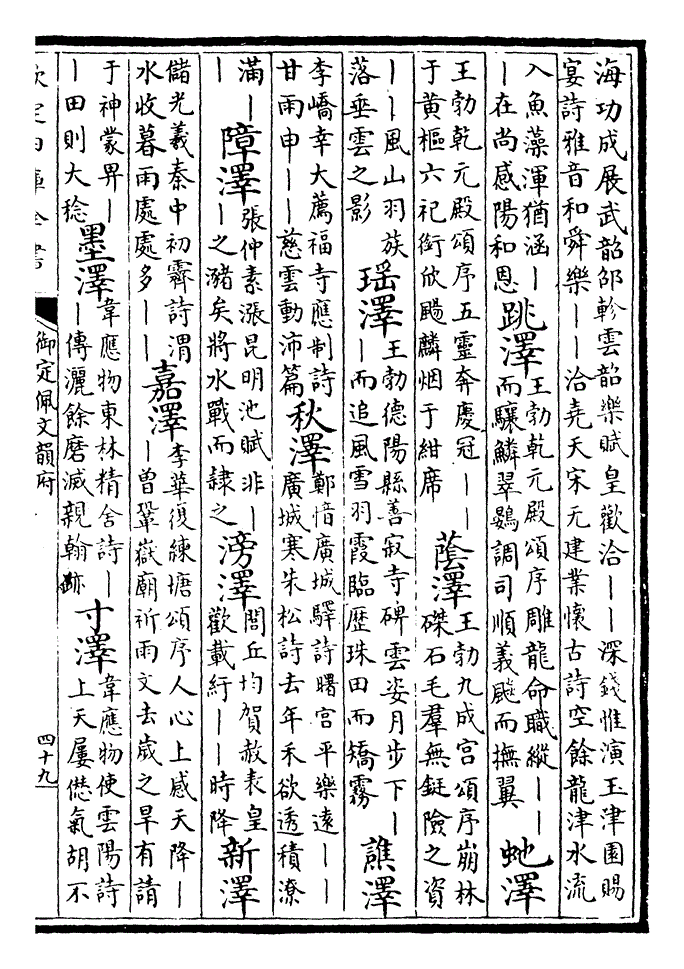 海功成展武韶邵軫雲韶樂賦皇歡洽——深錢惟演玉津園賜
宴詩雅音和舜樂——洽堯天宋元建業懷古詩空餘龍津水流
入魚藻渾猶涵—
—在尚感陽和恩
跳澤
王勃乾元殿頌序雕龍命職縱——
而驤鱗翠鷃調司順義颷而撫翼
虵澤
王勃乾元殿頌序五靈奔慶冠——
于黃樞六祀銜欣颺麟烟于紺席
蔭澤
王勃九成宮頌序崩林
磔石毛羣無鋌險之資
——風山羽族
落垂雲之影
瑶澤
王勃德陽縣善寂寺碑雲姿月步下—
—而追風雪羽霞臨歷珠田而矯霧
譙澤
李嶠幸大薦福寺應制詩
甘雨申——慈雲動沛篇
秋澤
鄭愔廣城驛詩曙宮平樂遠——
廣城寒朱松詩去年禾欲透積潦
滿—
—
障澤
張仲素漲昆明池賦非—
—之瀦矣將水戰而隸之
滂澤
閻丘均賀赦表皇
歡載紆——時降
新澤
儲光羲秦中初霽詩渭
水收暮雨處處多——
嘉澤
李華復練塘頌序人心上感天降—
—曾鞏嶽廟祈雨文去歲之旱有請
于神蒙畀—
—田則大稔
墨澤
韋應物東林精舍詩—
—傳灑餘磨滅親翰跡
寸澤
韋應物使雲陽詩
上天屢愆氣胡不
欽定四庫全書
御定佩文韻府
四十九